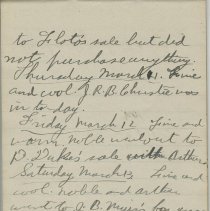 to Floto's sale but did
not purchase anything.
Thursday March 11. Fine
and cool. R.B. Christie was
in to-day.
Friday March 12 Fine and
warm noble went out to
D Duke's sale with Arthur
Saturday March 13 Fine and
cool. noble and arthur
went to J.B.